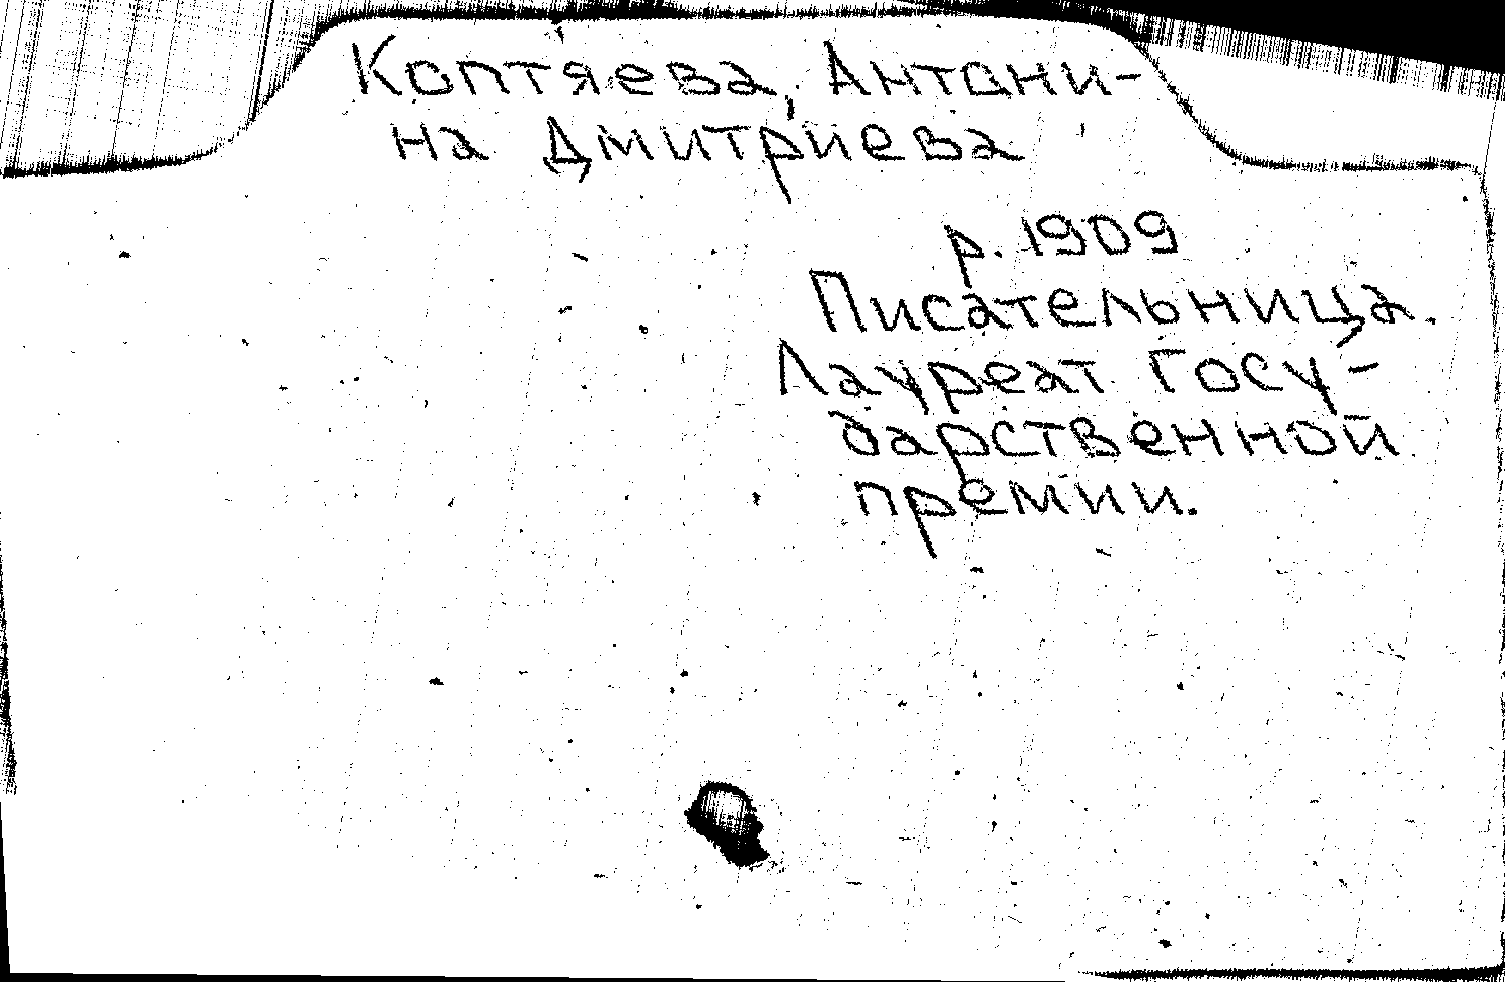 Коптяева, Антони-
на Дмитриева
р. 1909
Писательница.
Лауреат Госу-
дарственной
премии.